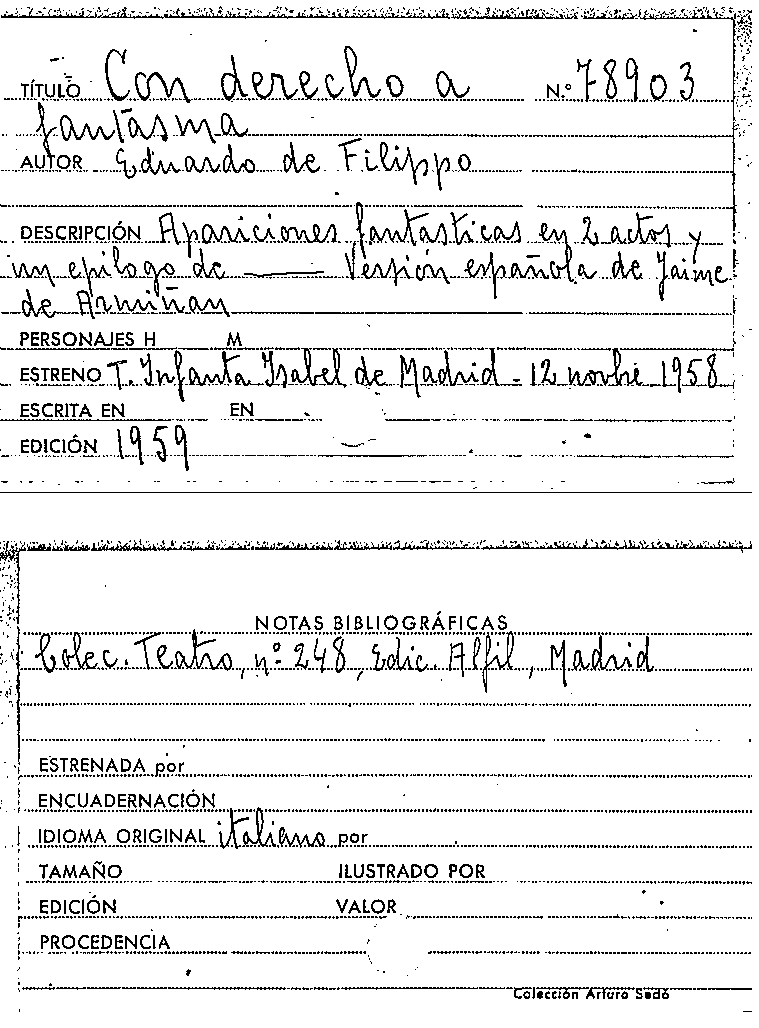 TÍTULO Con derecho a N.º 78903
fantasma
AUTOR Eduardo de Filippo
DESCRIPCIÓN Apariciones fantasticas en 2 actos y
un epilogo de ——— Versión española de Jaime
de Armiñan
PERSONAJES H M
ESTRENO T. Infanta Isabel de Madrid - 12 novbre 1958
ESCRITA EN EN
EDICIÓN 1959
NOTAS BIBLIOGRÁFICAS
Colec. Teatro, nº 248, Edic. Alfil, Madrid
ESTRENADA por
ENCUADERNACIÓN
IDIOMA ORIGINAL italiano por
TAMAÑO ILUSTRADO POR
EDICIÓN VALOR
PROCEDENCIA
Colección Arturo Sedó